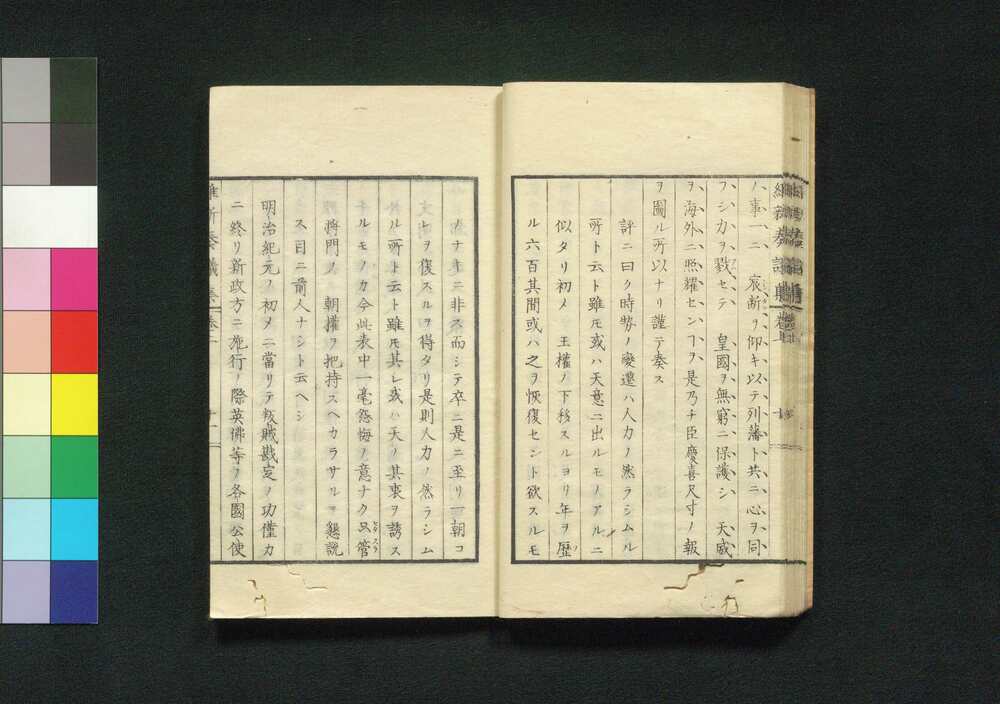 ハ事一ニ　哀断ヲ仰キ以テ列藩ト共ニ心ヲ同
フシ力ヲ戮セテ　皇國ヲ無窮ニ保護シ　天威
ヲ海外ニ照耀センヿヲ是乃チ臣慶喜尺寸ノ報
ヲ圖ル所以ナリ謹テ奏ス
評ニ曰ク時勢ノ變遷ハ人力ノ然ラシムル
所ト云ト雖モ或ハ天意ニ出ルモノアルニ
似タリ初メ　王權ノ下移スルヨリ年ヲ歴
ル六百其間或ハ之ヲ恢復セント欲スルモ
ノナキニ非ス而シテ卒ニ是ニ至リ一朝コ
レヲ復スルヲ得タリ是則人力ノ然ラシム
ル所ト云ト雖モ其レ或ハ天ノ其衷ヲ誘ス
ルモノカ今此表中一毫怨悔ノ意ナク只管
將門ノ　朝權ヲ把持スヘカラサルヲ懇說
ス目ニ前人ナシト云ヘシ
明治紀元ノ初メニ當リテ叛賊戡定ノ功僅カ
ニ終リ新政方ニ施行ノ際英佛等ノ各國公使
維新奏議集 卷二 十一